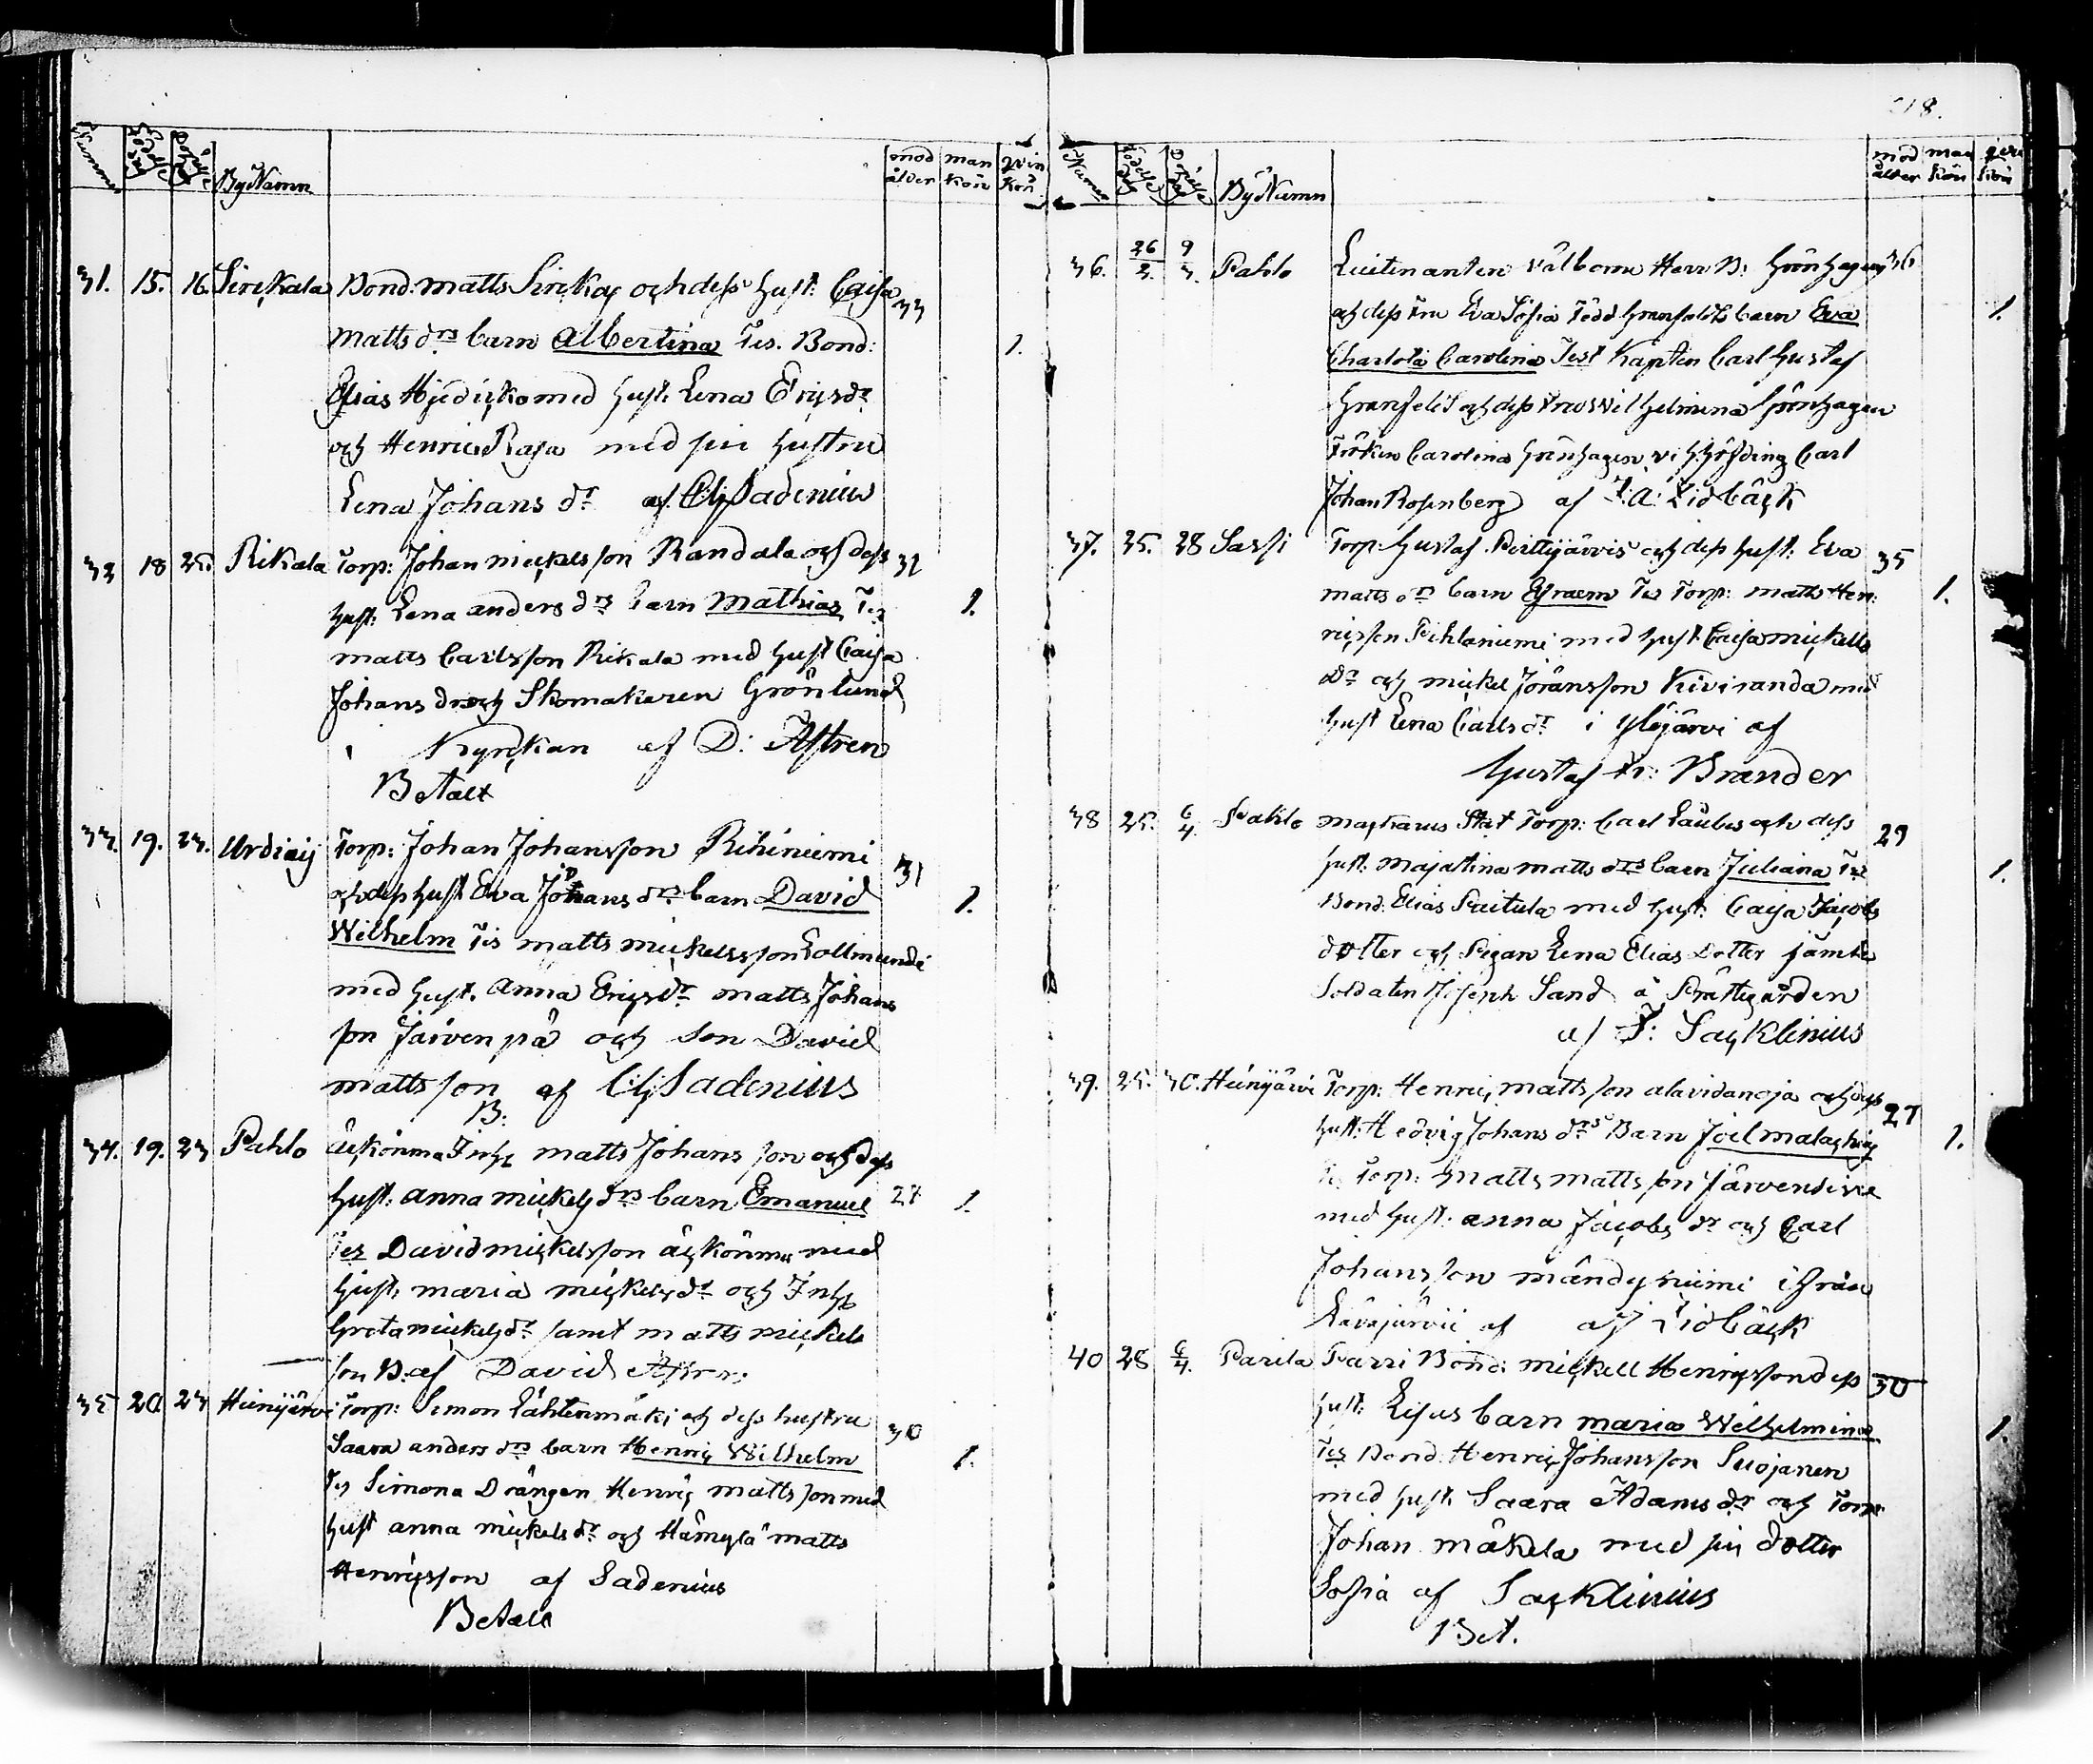 Nummer Födelse dag Döpelse dag By Namn mod ålder man kön qvin kön
31. 15. 16. Sirickala Bond. matts Siricka och dess hust: Caisa 33
matts drs barn Albertina Tes. Bond: 1.
Esias Hjedicko med hust. Lena Ericsdr
och Henric Rasa med sin hustru
Lena Johans dr af CG Sadenius
32 18 25 Rikala Torp: Johan mickelsson Randala och dess 32
hust: Lena anders drs barn Mathias Tes 1.
matts Carlsson Rikala med hust Caisa
Johans dr och Skomakaren Grönlund
i Kyrckan af D: Astren
Betalt
33. 19. 23. Urdiaij Torp: Johan Johansson Rihiniemi 31
och dess hust Eva Johans drs barn David 1.
Wilhelm Tes matts mickelsson Lollmundi
med hust. Anna Ericsdr matts Johans
son Järvenpä och son David
mattsson af CG Sadenius
B:
34. 19. 23 Pahlo äckönma Inhs matts Johansson och dess
hust: anna mickels drs barn Emanuel 27 1.
Tes David mickelsson äckönma med
hust. maria mickelsdr och Inhs
Greta mickelsdr samt matts mickels
son B. af David Astren
35 20 23 Heinijärvi Torp: Simon Lähtenmäki och dess hustru 30
Saara anders drs barn Henric Wilhelm 1.
Tes Simona Drängen Henric mattsson med
hust anna mickels dr och Hämylä matts
Henricsson af Sadenius
Betalt
218.
Nummer Födelse dag Döpelse dag By Namn mod ålder man kön qvin kön
36. 26/2. 9/3. Pahlo Luitenanten välborne Herr B: Grönhagen 36
och dess Fru Eva Sofia Född Granfeldts barn Eva 1.
Charlota Carolina Test Kapten Carl Gustaf
Granfelt och dess Fru Wilhelmina Grönhagen
Fröken Carolina Grönhagen, v: h:höfding Carl
Johan Rosenberg af J: A: Lidbäck
37. 25. 28 Sassi Torp. Gustaf Perttijärvis och dess hust: Eva 35
matts drs barn Efraem Tes Torp: matts Hen: 1.
ricsson Pihlaniemi med hust Caisa mickells
dr och mickel Jöransson Kiviranda med
hust Lena Carlsdr i Ylöjärvi af
Gustaf Fr: Brander
38 25. 6/4. Pahlo Stat Torp: Carl och dess 29
hust: majastina matts drs barn Juliana Tes 1.
Bond: Elias Puitula med hust: Caisa Jacobs
dotter och Pigan Lena Elias Dotter jämte
Soldaten Joseph Sand å Prästegården
af F: Sacklinius
39. 25. 30. Heinijärvi Torp: Henric mattsson alavidanoja och dess 27
hust: Hedvig Johans drs Barn Joel malachias 1.
Tes Torp: matts mattsson Järvensivu
med hust: anna Jacobs dr och Carl
Johansson mändyniemi ifrån
af aj Lidbäck
40 28 6/4. Parila Parri Bond: mickell Henricsson dess 30
hust: Lisas barn maria Wilhelmina 1.
Tes Bond: Henric Johansson Suojanen
med hust. Saara Adams dr och Torp:
Johan mäkela med sin dotter
Sofia af Sacklinius
Bet.